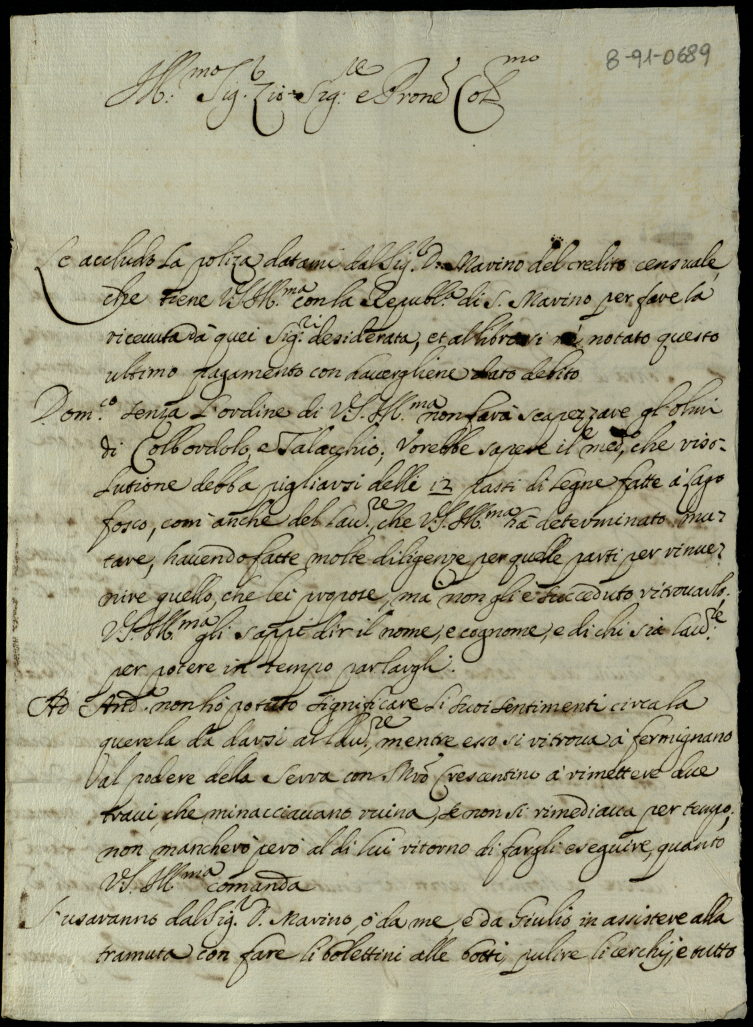 8-91-0689
Ill.mo Sig.r Zio Sig.re e Prone Col.mo
Le accludo la poliza datami dal Sig.r D. Marino del credito censuale,
che tiene V.S. Ill.ma con la Republ.a di S. Marino per fare la
riceuuta da quei Sig.ri desiderata, et alli librarvi né notato questo
ultimo pagamento con hauergliene dato debito
Dom.co senza l'ordine di V.S. Ill.ma non farà scapezzare gl'oliui
di Colbordolo, e Talacchio; Vorebbe sapere il med.e, che riso-
lutione debba pigliarsi delle 12 passi di legne fatte à Lago
fosco, com'anche del Lau.re che V.S. Ill.ma hà determinato mu-
tare, hauendo fatte molte diligenze per quelle parti per rinue-
nire quello, che lei propose, mà non gli è succeduto ritrouarlo.
V.S. Ill.ma gli sappi dir il nome, e cognome, e di chi sia Lau.re
per potere in tempo parlargli.
Ad And.a non hò potuto significare li suoi sentimenti circa la
querela da darsi al Lau.re, mentre esso si ritroua à fermignano
al podere della Serra con M.ro Crescentino à rimettere due
traui, che minacciauano ruina, se non si rimediaua per tempo;
non mancherò però al di lui ritorno di fargli eseguire, quanto
V.S. Ill.ma comanda
S'usaranno dal Sig.r D. Marino, ò da me, e da Giulio in assistere alla
tramuta con fare li bolettini alle botti, pulire li cerchij, e tutto